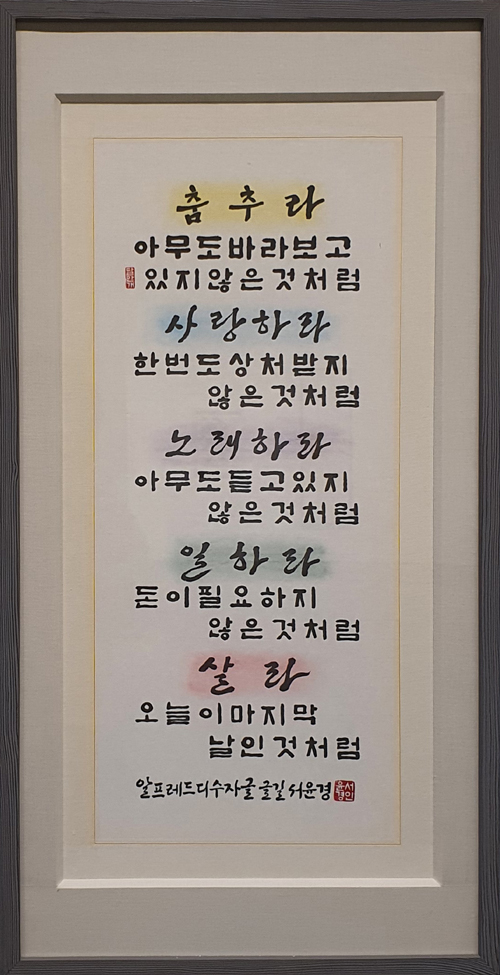 춤추라
아무도바라보고
있지않은것처럼
사랑하라
한번도상처받지
않은것처럼
노래하라
아무도듣고있지
않은것처럼
일하라
돈이필요하지
않은것처럼
살라
오늘이마지막
날인것처럼
알프레드디수자글 글길 서윤경